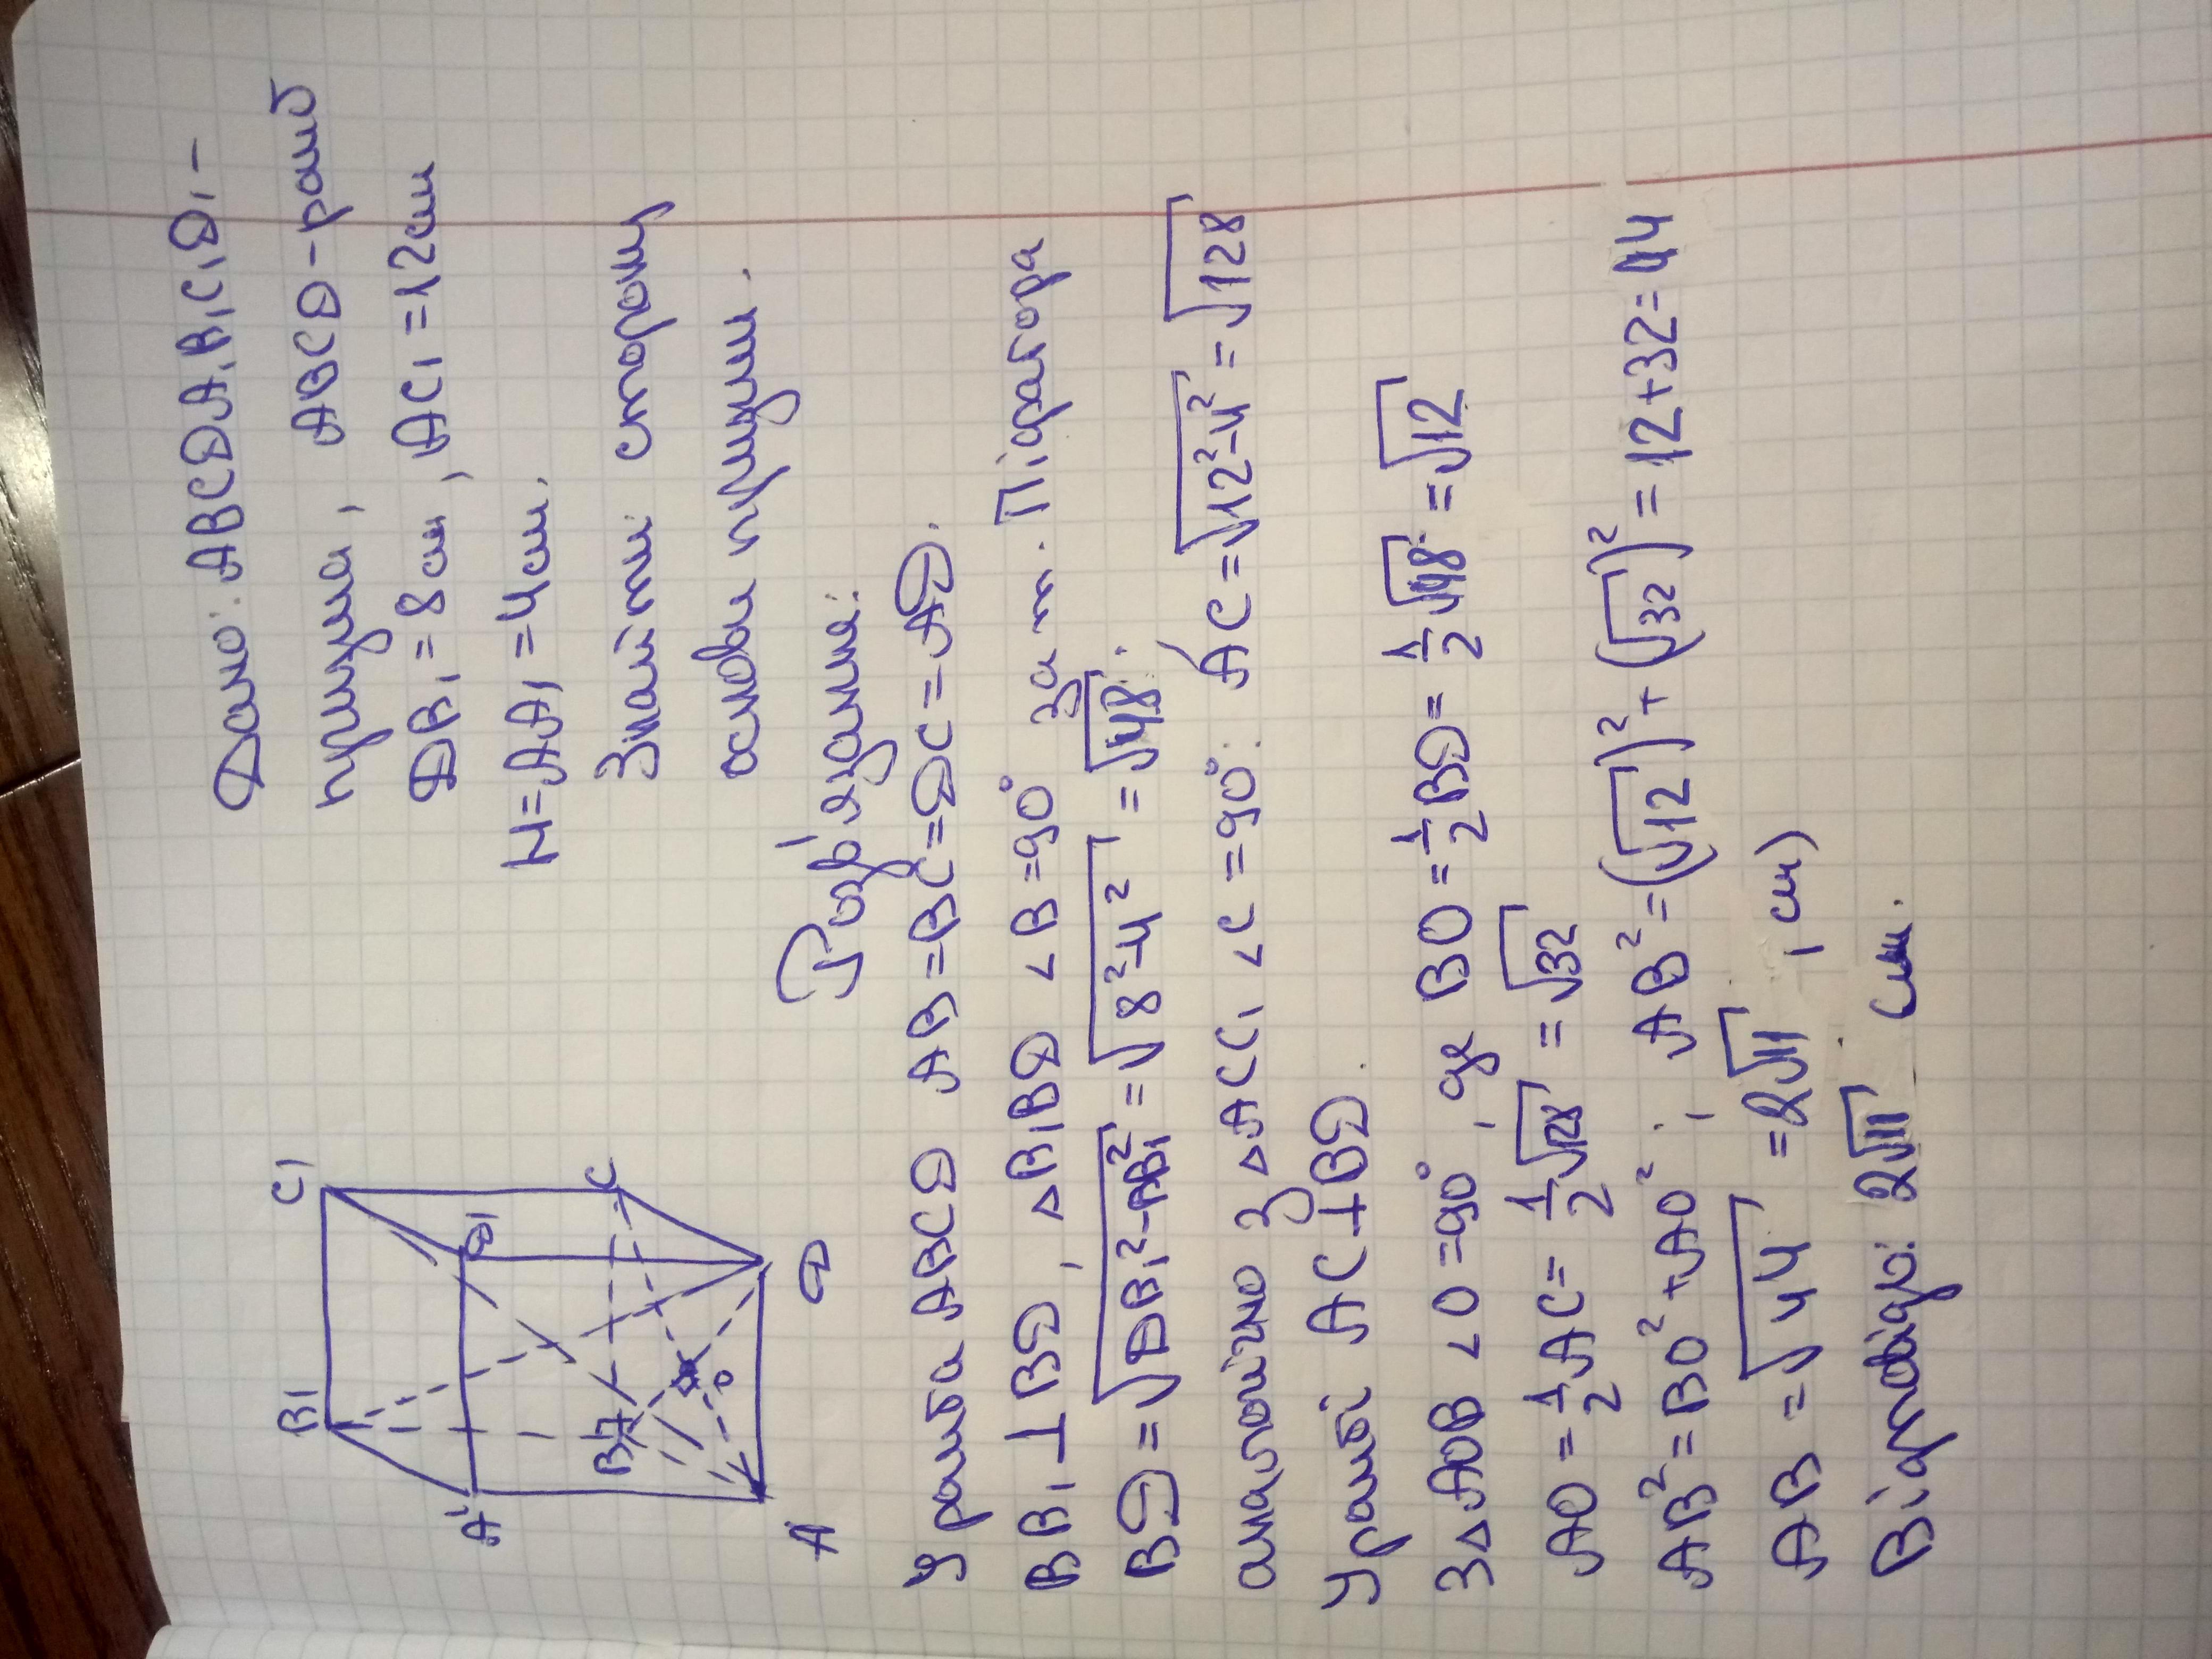 Дано: ABCDA₁B₁C₁D₁ –
призма, ABCD – ромб
DB₁ = 8 см, AC₁ = 12 см
H = AA₁ = 4 см.
Знайти сторону
основи призми.
B₁ C₁
A₁ D₁
B C
O
A D
Розв'язання:
У ромба ABCD AB = BC = DC = AD.
BB₁ ⊥ BD, △B₁BD ∠B = 90° за т. Піфагора
BD = √(DB₁² - BB₁²) = √(8² - 4²) = √48.
аналогічно з △ACC₁ ∠C = 90°. AC = √(12² - 4²) = √128
У ромбі AC ⊥ BD.
З △AOB ∠O = 90°, де BO = 1/2 BD = 1/2 √48 = √12
AO = 1/2 AC = 1/2 √128 = √32
AB² = BO² + AO²; AB² = (√12)² + (√32)² = 12 + 32 = 44
AB = √44 = 2√11 (см)
Відповідь: 2√11 см.